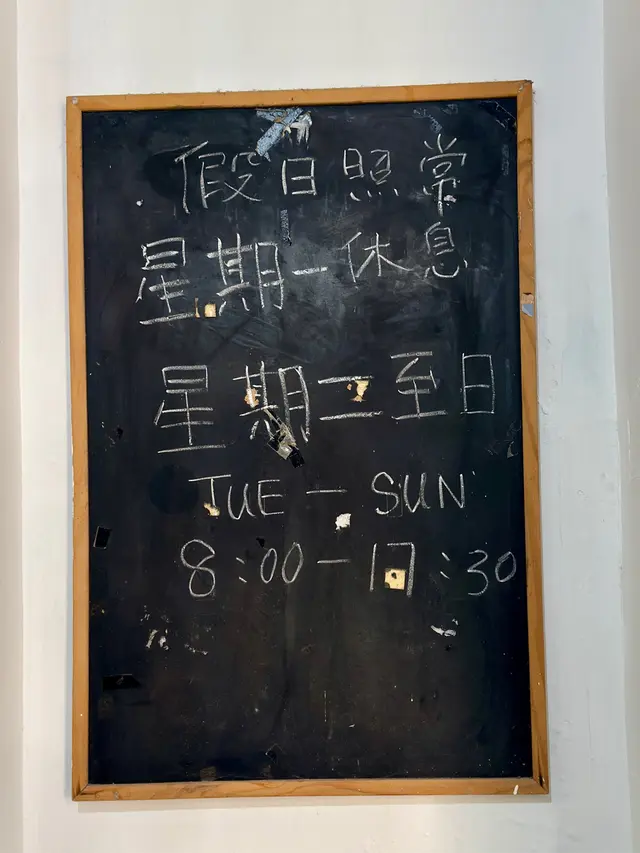 假日照常
星期一休息
星期二至日
TUE — SUN
8:00 — 17:30